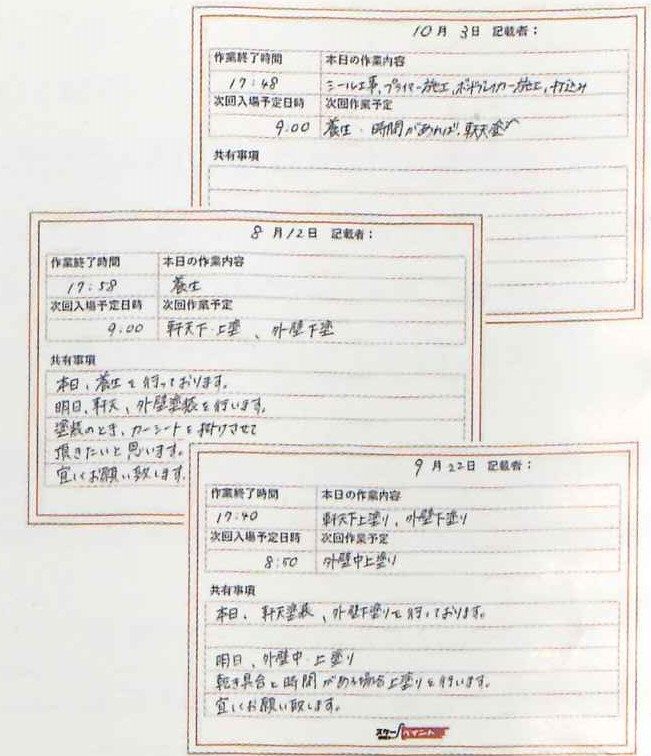 10月 3日 記載者：
作業終了時間 本日の作業内容
17:48 シール工事、プライマー施工、ボンドブレーカー施工、打込み
次回入場予定日時 次回作業予定
9:00 養生・時間があれば、軒天塗
共有事項
8月12日 記載者：
作業終了時間 本日の作業内容
17:58 養生
次回入場予定日時 次回作業予定
9:00 軒天下・上塗、外壁下塗
共有事項
本日、養生を行っております。
明日、軒天、外壁塗装を行います。
塗装のとき、カーシートを掛けさせて
頂きたいと思います。
宜しくお願い致します。
9月22日 記載者：
作業終了時間 本日の作業内容
17:40 軒天下上塗り、外壁下塗り
次回入場予定日時 次回作業予定
8:50 外壁中上塗り
共有事項
本日、軒天塗装、外壁下塗りを行っております。
明日、外壁中・上塗り
乾き具合と時間がある場合上塗りを行います。
宜しくお願い致します。
ペイント